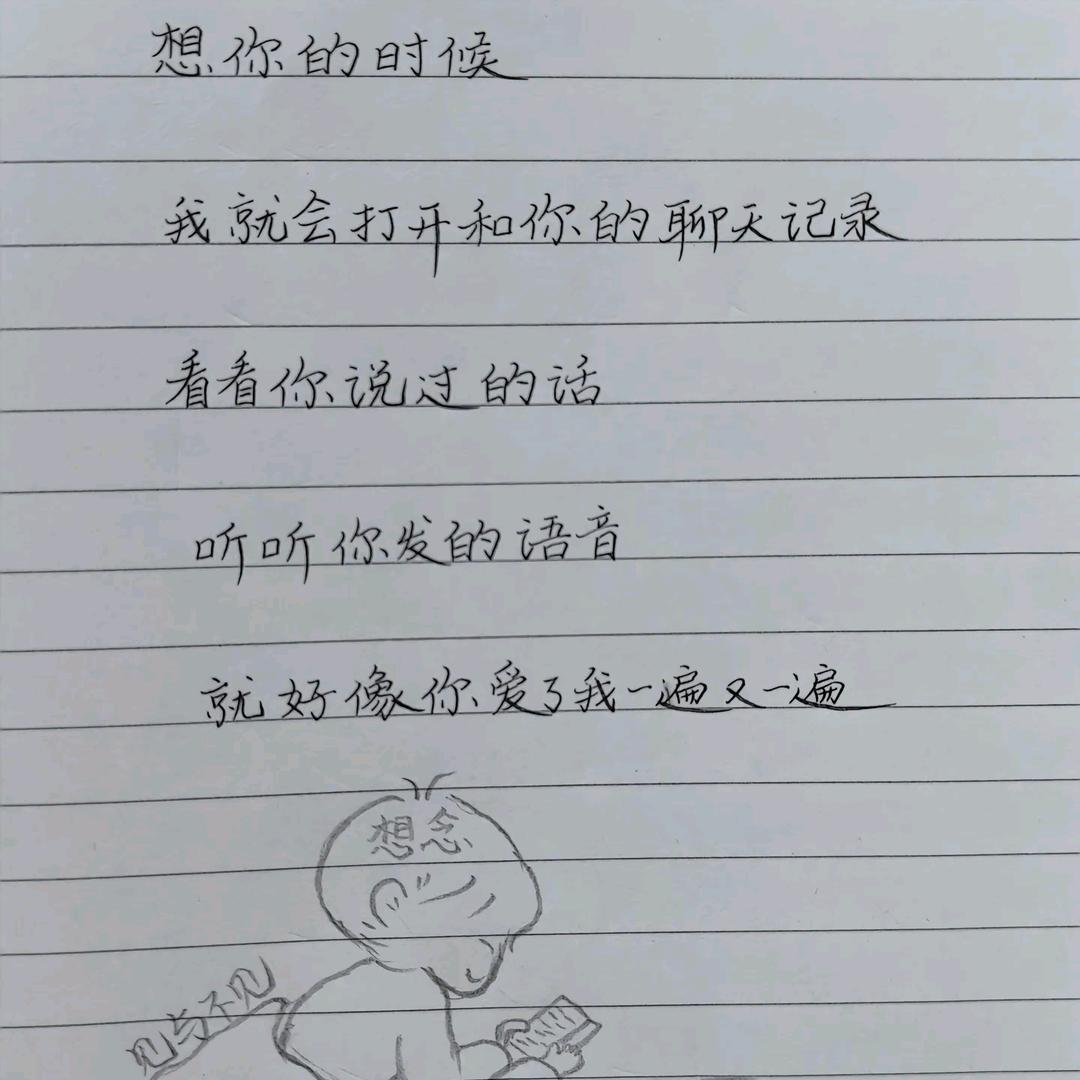 想你的时候
我就会打开和你的聊天记录
看看你说过的话
听听你发的语音
就好像你爱了我一遍又一遍
想念
见与不见